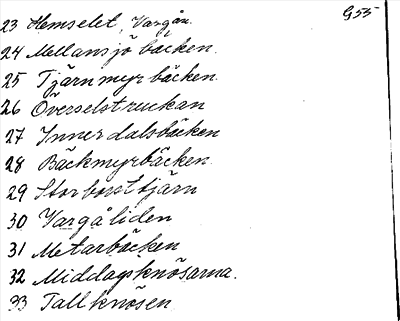 G55
23 Hemselet, Vargån.
24 Mellansjöbäcken.
25 Tjärnmyrbäcken
26 Överselstruckan
27 Innerdalsbäcken
28 Bäckmyrbäcken.
29 Storborsttjärn
30 Vargåliden
31 Metarbäcken
32 Middagsknösarna.
33 Tallknösen